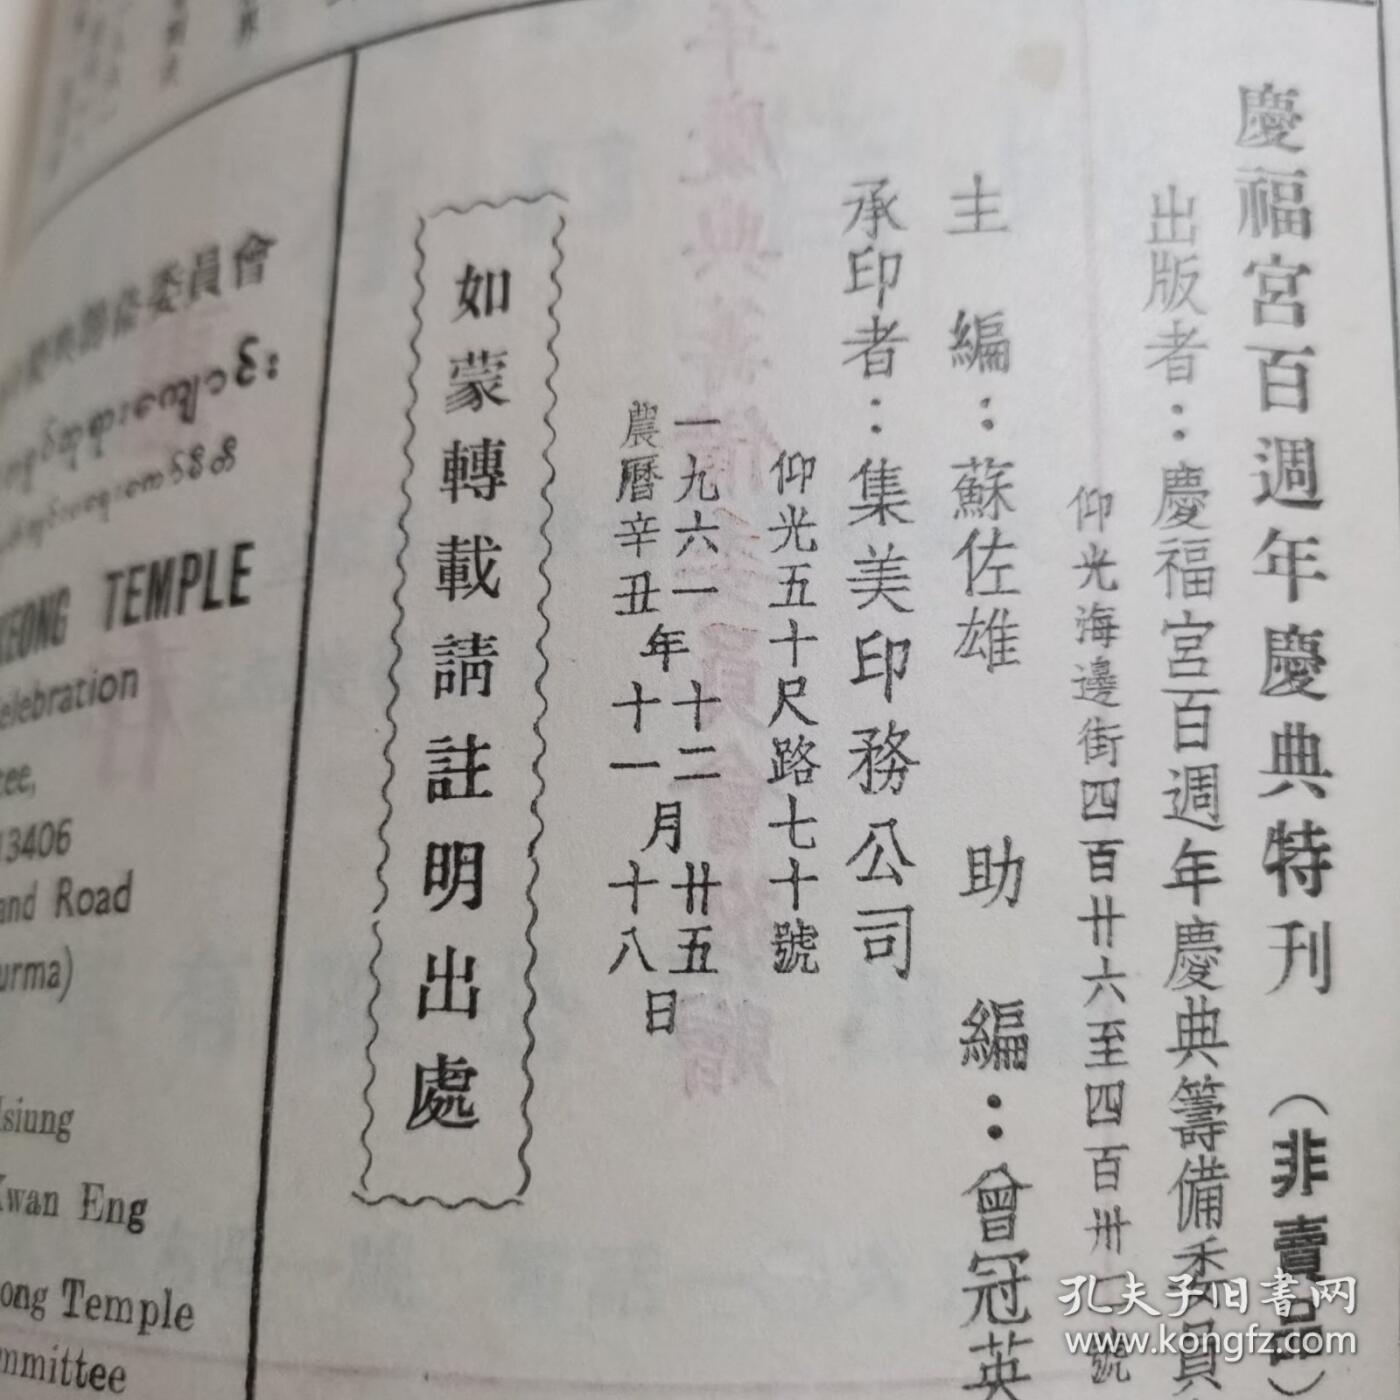 慶福宮百週年慶典特刊 (非賣品)
出版者：慶福宮百週年慶典籌備委員
仰光海邊街四百廿六至四百卅
號
主編：蘇佐雄 助編：曾冠英
承印者：集美印務公司
仰光五十尺路七十號
一九六一年十二月廿五日
農曆辛丑年十一月十八日
如蒙轉載請註明出處
委員會
KEONG TEMPLE
elebration
tee,
13406
and Road
urma)
Hsiung
Kwan Eng
ong Temple
mmittee
孔夫子旧书网
www.kongfz.com